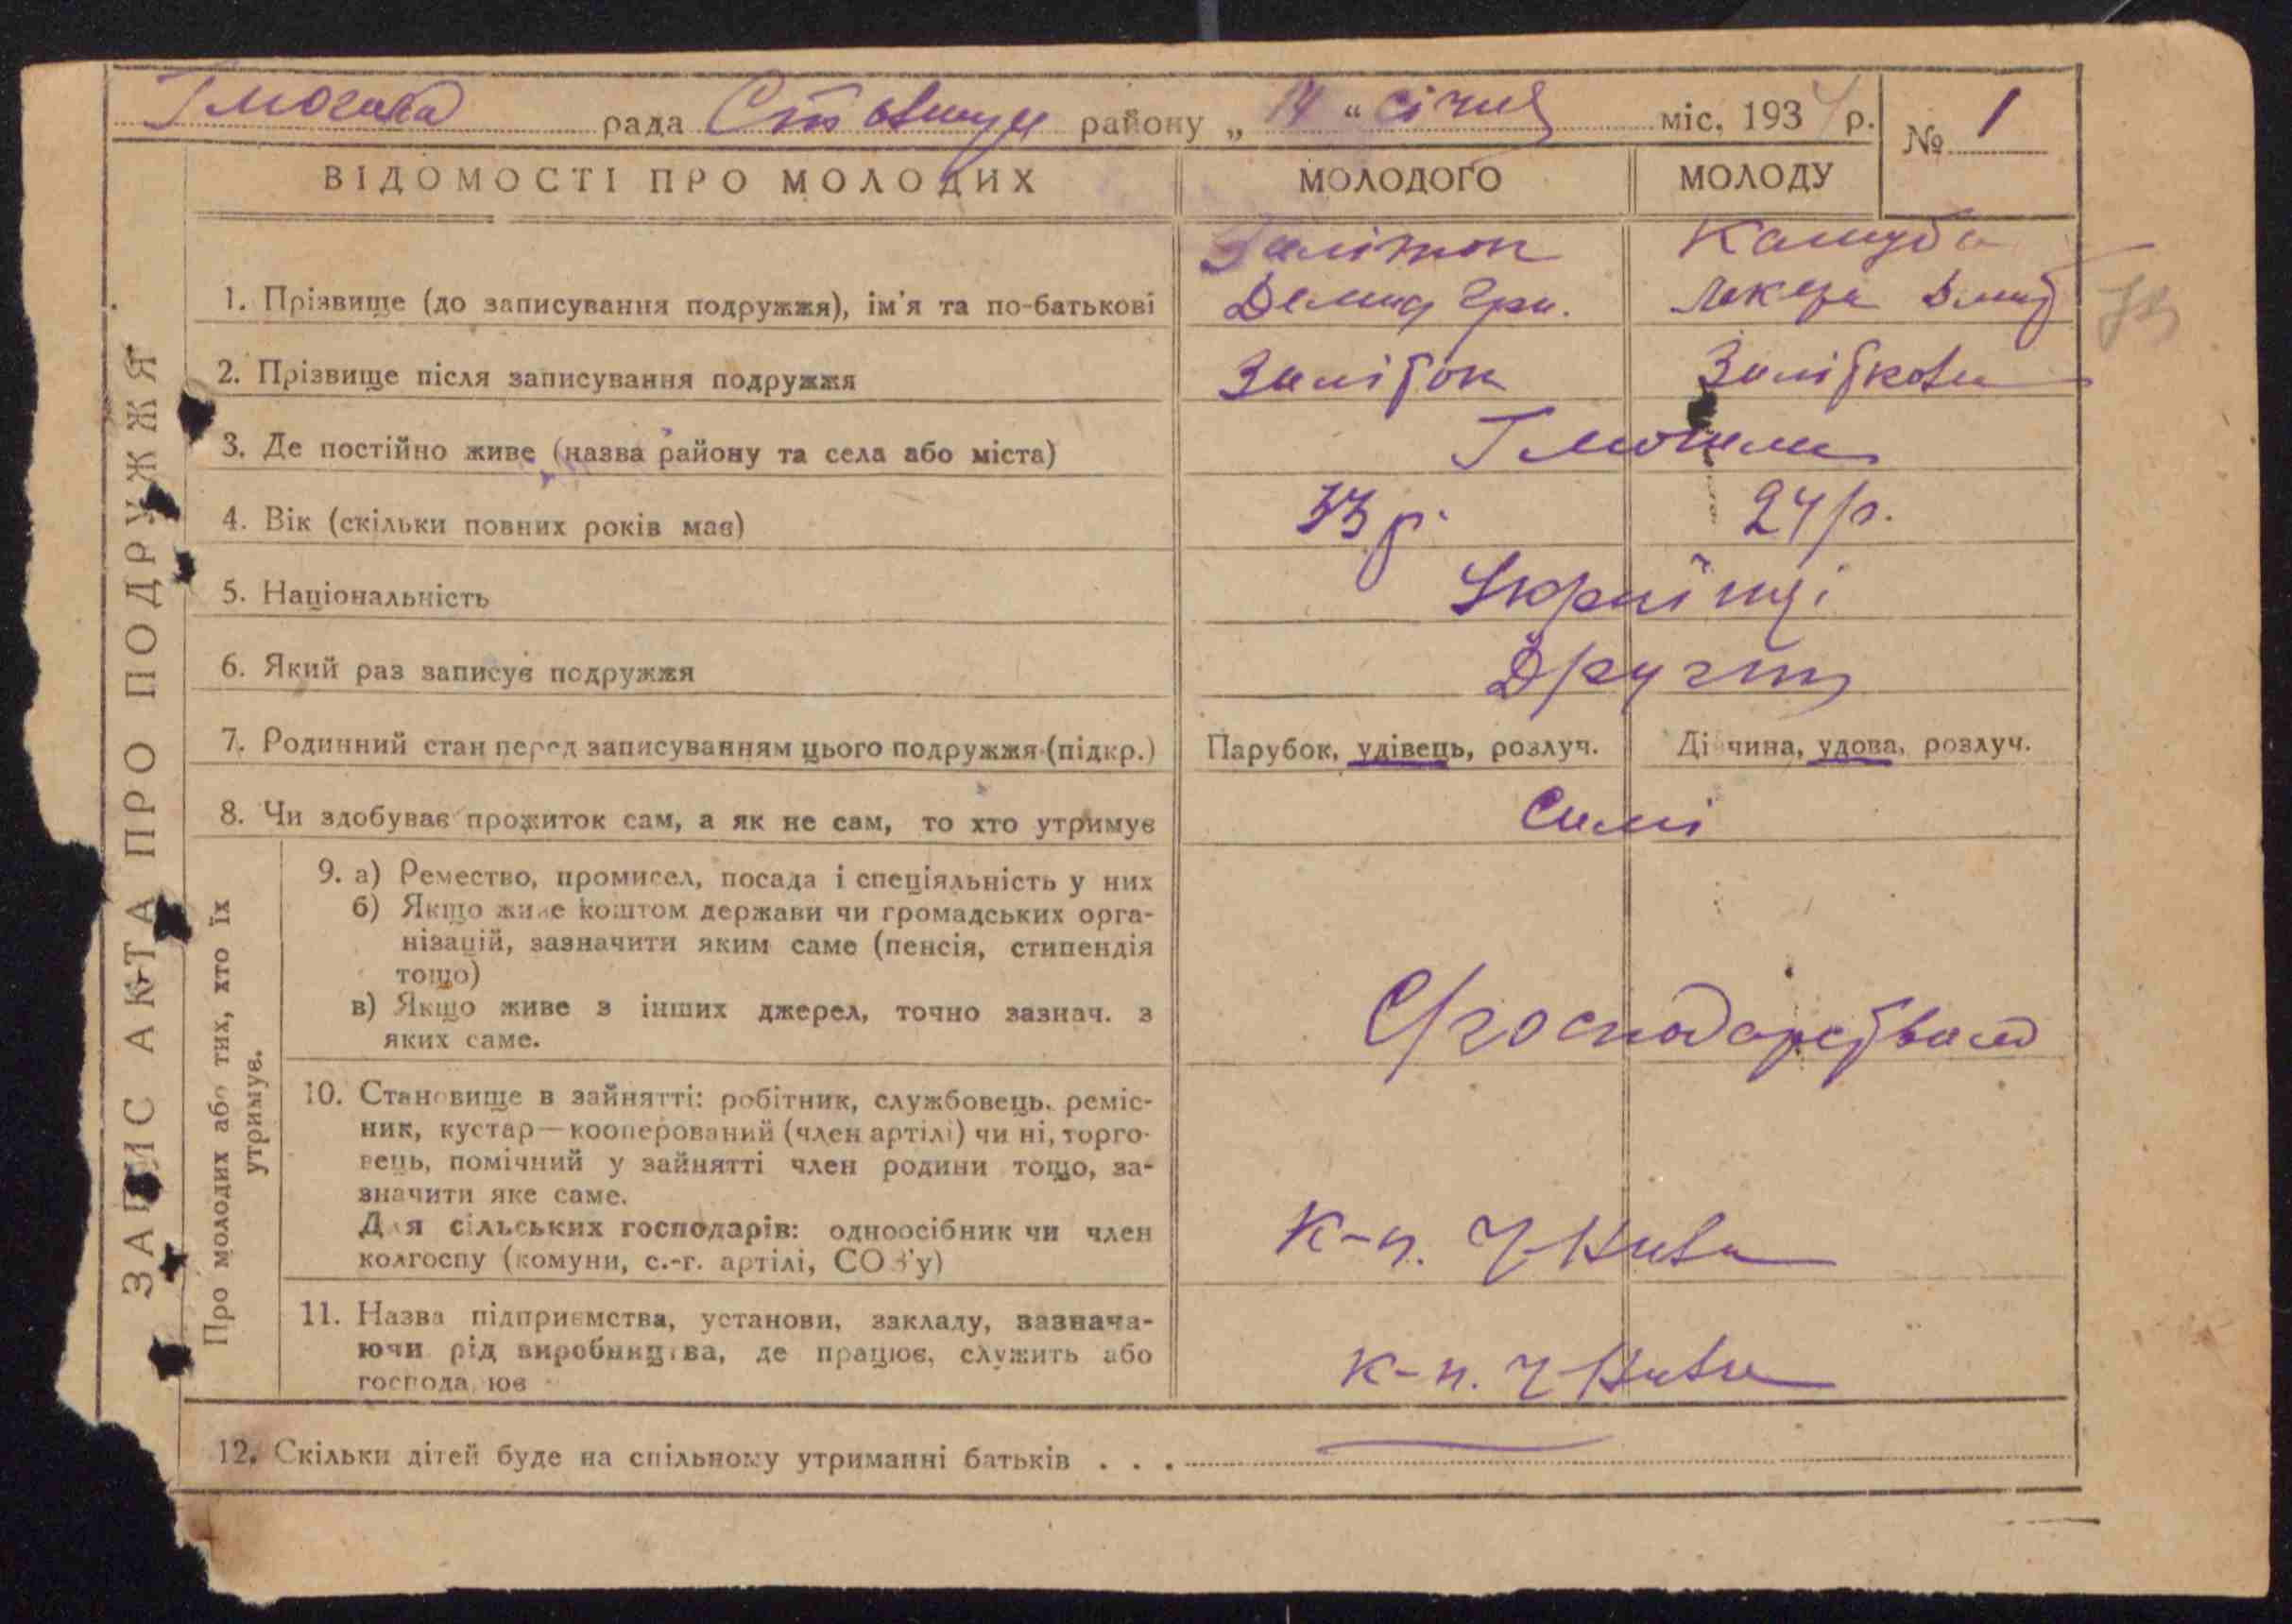 рада район „ 14 “ січня міс. 1934 р. № 1
ВІДОМОСТІ ПРО МОЛОДИХ МОЛОДОГО МОЛОДУ
ЗАПИС АКТА ПРО ПОДРУЖЖЯ
1. Прізвище (до записування подружжя), ім'я та по-батькові Демид Гри.
2. Прізвище після записування подружжя Заліток Заліткова
3. Де постійно живе (назва району та села або міста)
4. Вік (скільки повних років має) 33 р. 24 р.
5. Національність Українці
6. Який раз записує подружжя Другий
7. Родинний стан перед записуванням цього подружжя (підкр.) Парубок, удівець, розлуч. Дівчина, удова, розлуч.
8. Чи здобуває прожиток сам, а як не сам, то хто утримує Самі
Про молодих або тих, хто їх
утримує.
9. а) Ремество, промисел, посада і спеціяльність у них
б) Якщо живе коштом держави чи громадських орга-
нізацій, зазначити яким саме (пенсія, стипендія
тощо)
в) Якщо живе з інших джерел, точно зазнач. з
яких саме.
С/господарством
10. Становище в зайнятті: робітник, службовець, реміс-
ник, кустар—кооперований (член артілі) чи ні, торго-
вець, помічний у зайнятті член родини тощо, за-
значити яке саме.
Для сільських господарів: одноосібник чи член
колгоспу (комуни, с.-г. артілі, СОЗ'у)
Нива
11. Назва підприємства, установи, закладу, зазнача-
ючи рід виробництва, де працює, служить або
господарює
Нива
12. Скільки дітей буде на спільному утриманні батьків . . .